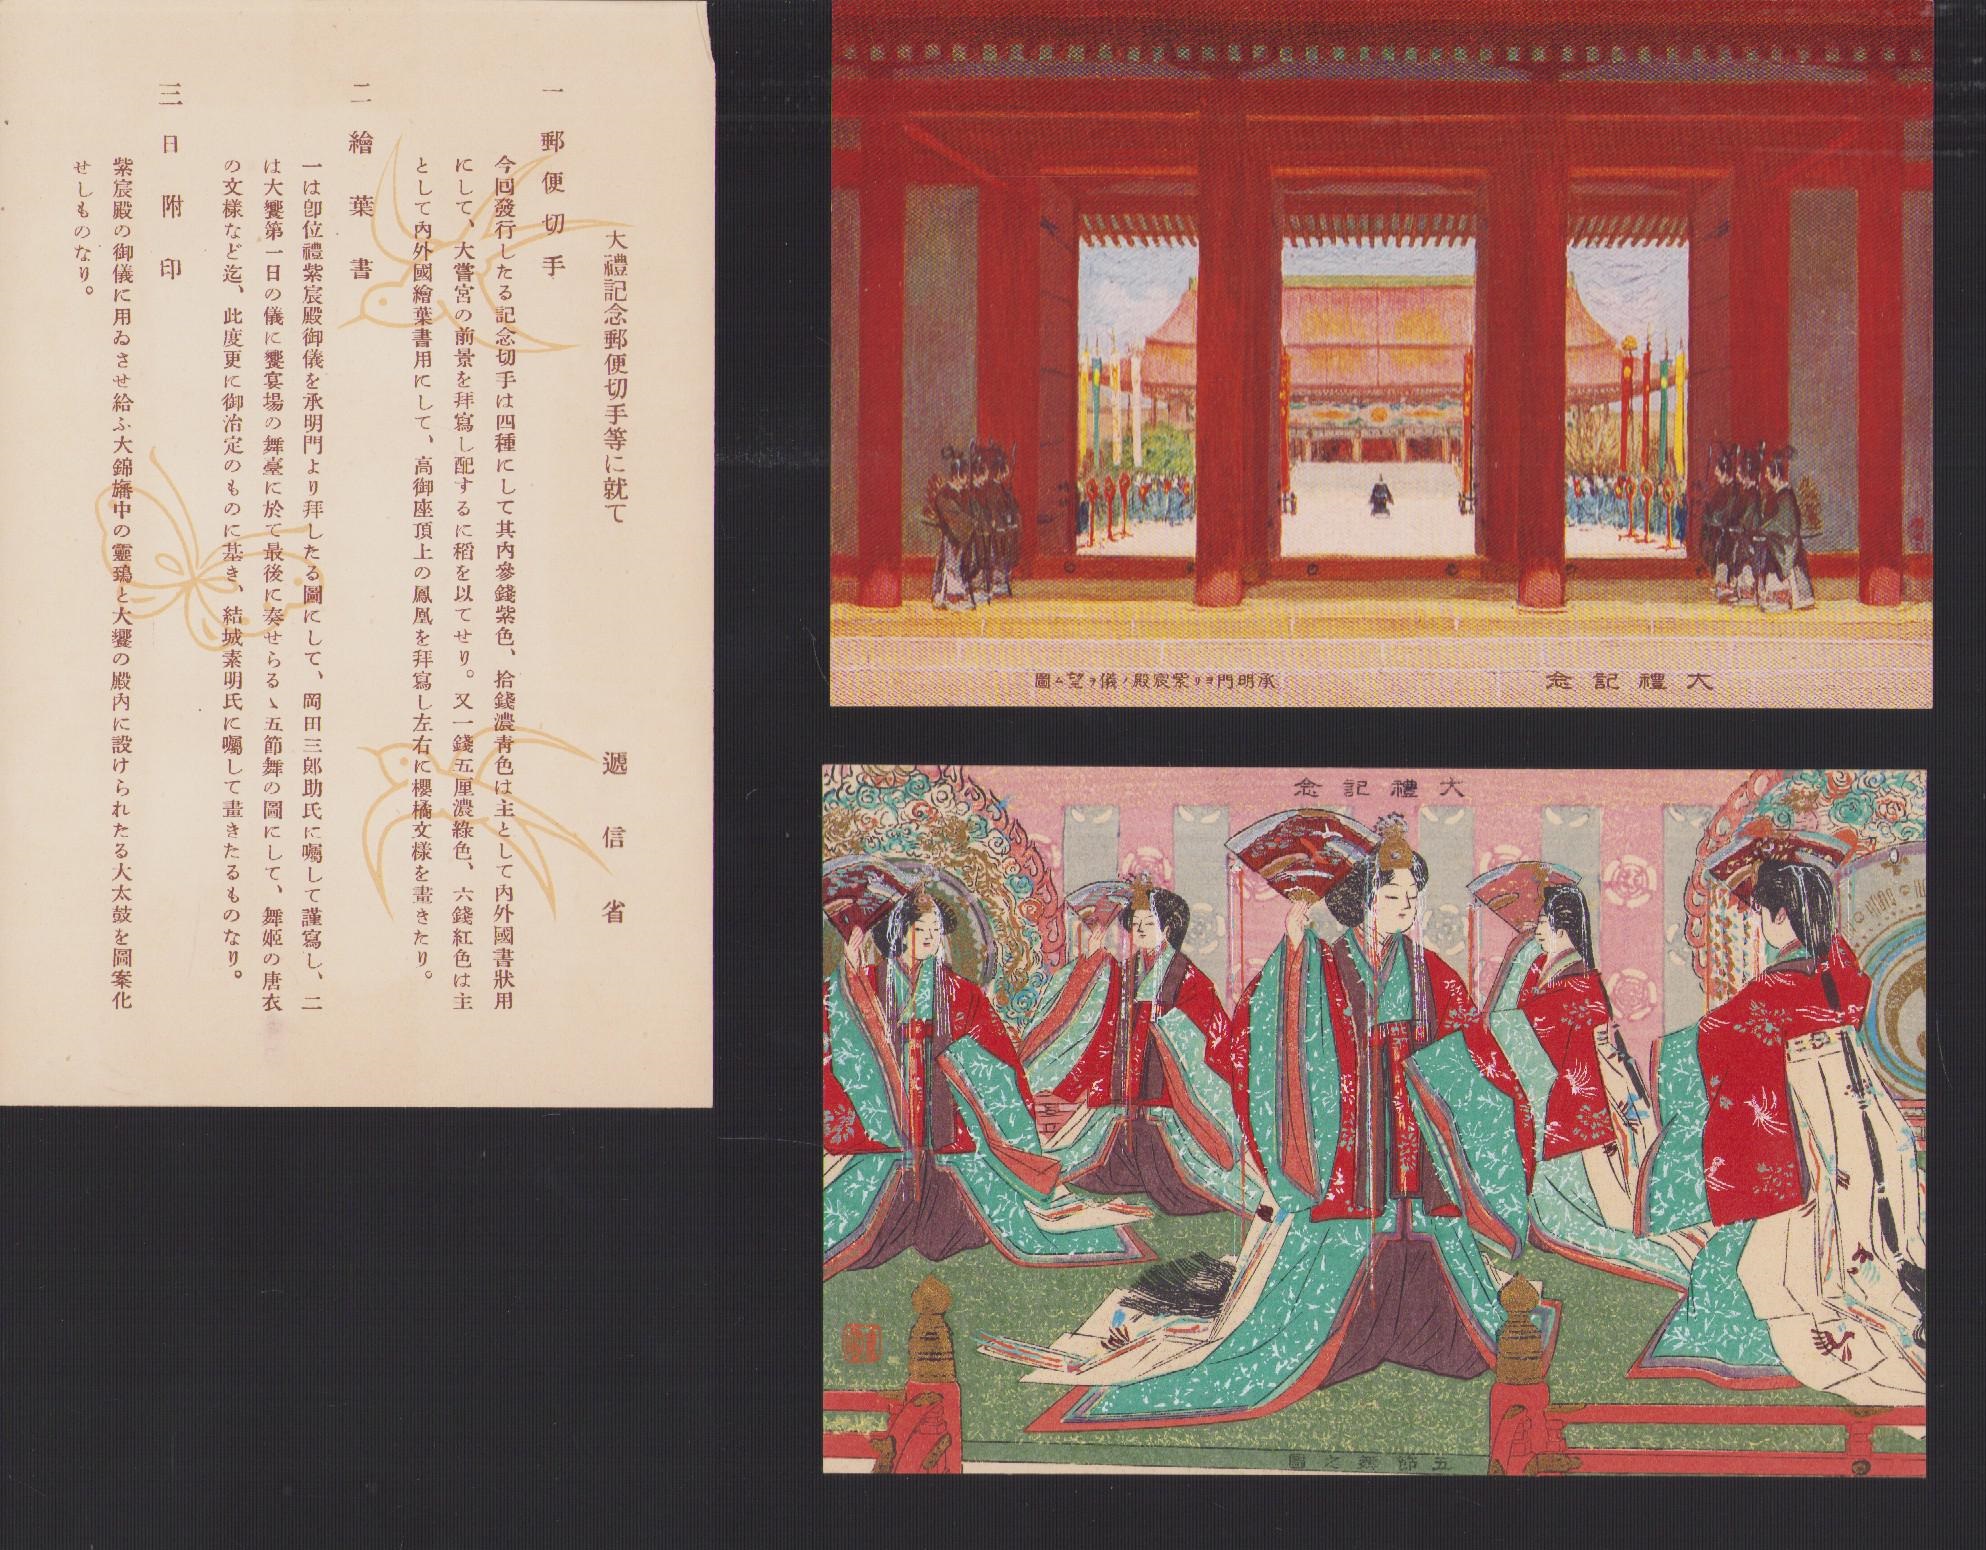 大禮記念郵便切手等に就て
遞信省
一 郵便切手
今回發行したる記念切手は四種にして其内參錢紫色、拾錢濃靑色は主として内外國書狀用
にして、大嘗宮の前景を拜寫し配するに稻を以てせり。又一錢五厘濃綠色、六錢紅色は主
として内外國繪葉書用にして、高御座頂上の鳳凰を拜寫し左右に櫻橘文樣を畫きたり。
二 繪葉書
一は卽位禮紫宸殿御儀を承明門より拜したる圖にして、岡田三郞助氏に囑して謹寫し、二
は大饗第一日の儀に饗宴場の舞臺に於て最後に奏せらるゝ五節舞の圖にして、舞姬の唐衣
の文樣など迄、此度更に御治定のものに基き、結城素明氏に囑して畫きたるものなり。
三 日附印
紫宸殿の御儀に用ゐさせ給ふ大錦旛中の靈鵄と大饗の殿内に設けられたる大太鼓を圖案化
せしものなり。
大禮記念
承明門ヨリ紫宸殿ノ儀ヲ望ム圖
大禮記念
五節舞之圖